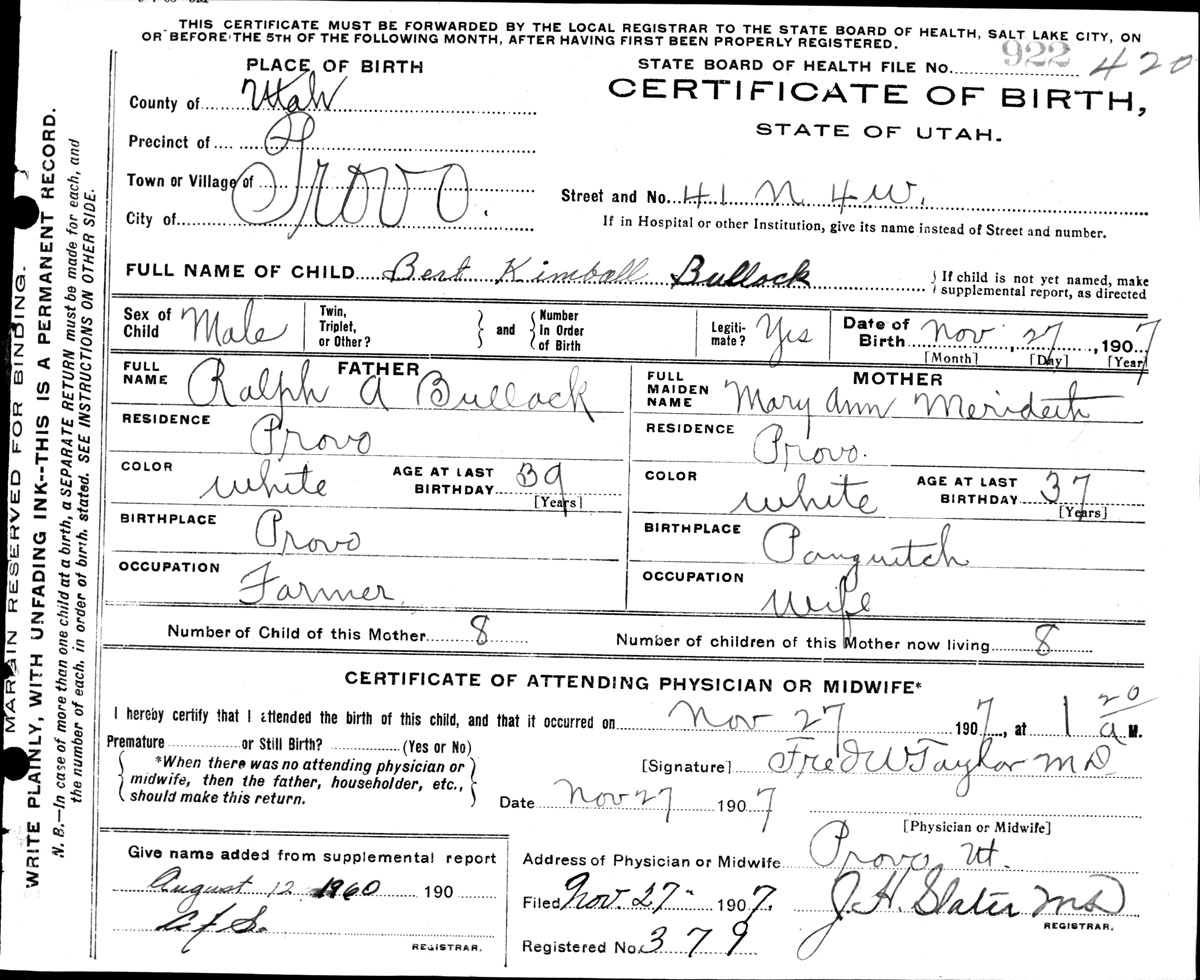 THIS CERTIFICATE MUST BE FORWARDED BY THE LOCAL REGISTRAR TO THE STATE BOARD OF HEALTH, SALT LAKE CITY, ON
OR BEFORE THE 5TH OF THE FOLLOWING MONTH, AFTER HAVING FIRST BEEN PROPERLY REGISTERED.
PLACE OF BIRTH
STATE BOARD OF HEALTH FILE No. 922 420
County of Utah
CERTIFICATE OF BIRTH,
STATE OF UTAH.
Precinct of
Town or Village of Provo.
Street and No. 41 N 4 W.
City of
If in Hospital or other Institution, give its name instead of Street and number.
FULL NAME OF CHILD Bert Kimball Bullock
If child is not yet named, make
supplemental report, as directed
Sex of Child Male
Twin, Triplet, or Other? and Number In Order of Birth
Legiti-mate? Yes
Date of Birth Nov. 27, 1907
[Month] [Day] [Year]
FATHER
FULL NAME Ralph A Bullock
MOTHER
FULL MAIDEN NAME Mary Ann Merideth
RESIDENCE Provo
RESIDENCE Provo.
COLOR white AGE AT LAST BIRTHDAY 39 [Years]
COLOR white AGE AT LAST BIRTHDAY 37 [Years]
BIRTHPLACE Provo
BIRTHPLACE Panguitch
OCCUPATION Farmer
OCCUPATION Wife
Number of Child of this Mother 8
Number of children of this Mother now living 8
CERTIFICATE OF ATTENDING PHYSICIAN OR MIDWIFE*
I hereby certify that I attended the birth of this child, and that it occurred on Nov 27 1907, at 1 20 a M.
Premature or Still Birth? (Yes or No)
*When there was no attending physician or
midwife, then the father, householder, etc.,
should make this return.
[Signature] Fred W Taylor MD
Date Nov 27 1907
[Physician or Midwife]
Give name added from supplemental report
August 12 1960 190
REGISTRAR.
Address of Physician or Midwife Provo Ut.
Filed Nov. 27 1907.
J. H. Slater MD
REGISTRAR.
Registered No. 379
MARGIN RESERVED FOR BINDING.
WRITE PLAINLY, WITH UNFADING INK--THIS IS A PERMANENT RECORD.
N. B.—In case of more than one child at a birth, a SEPARATE RETURN must be made for each, and
the number of each, in order of birth, stated. SEE INSTRUCTIONS ON OTHER SIDE.